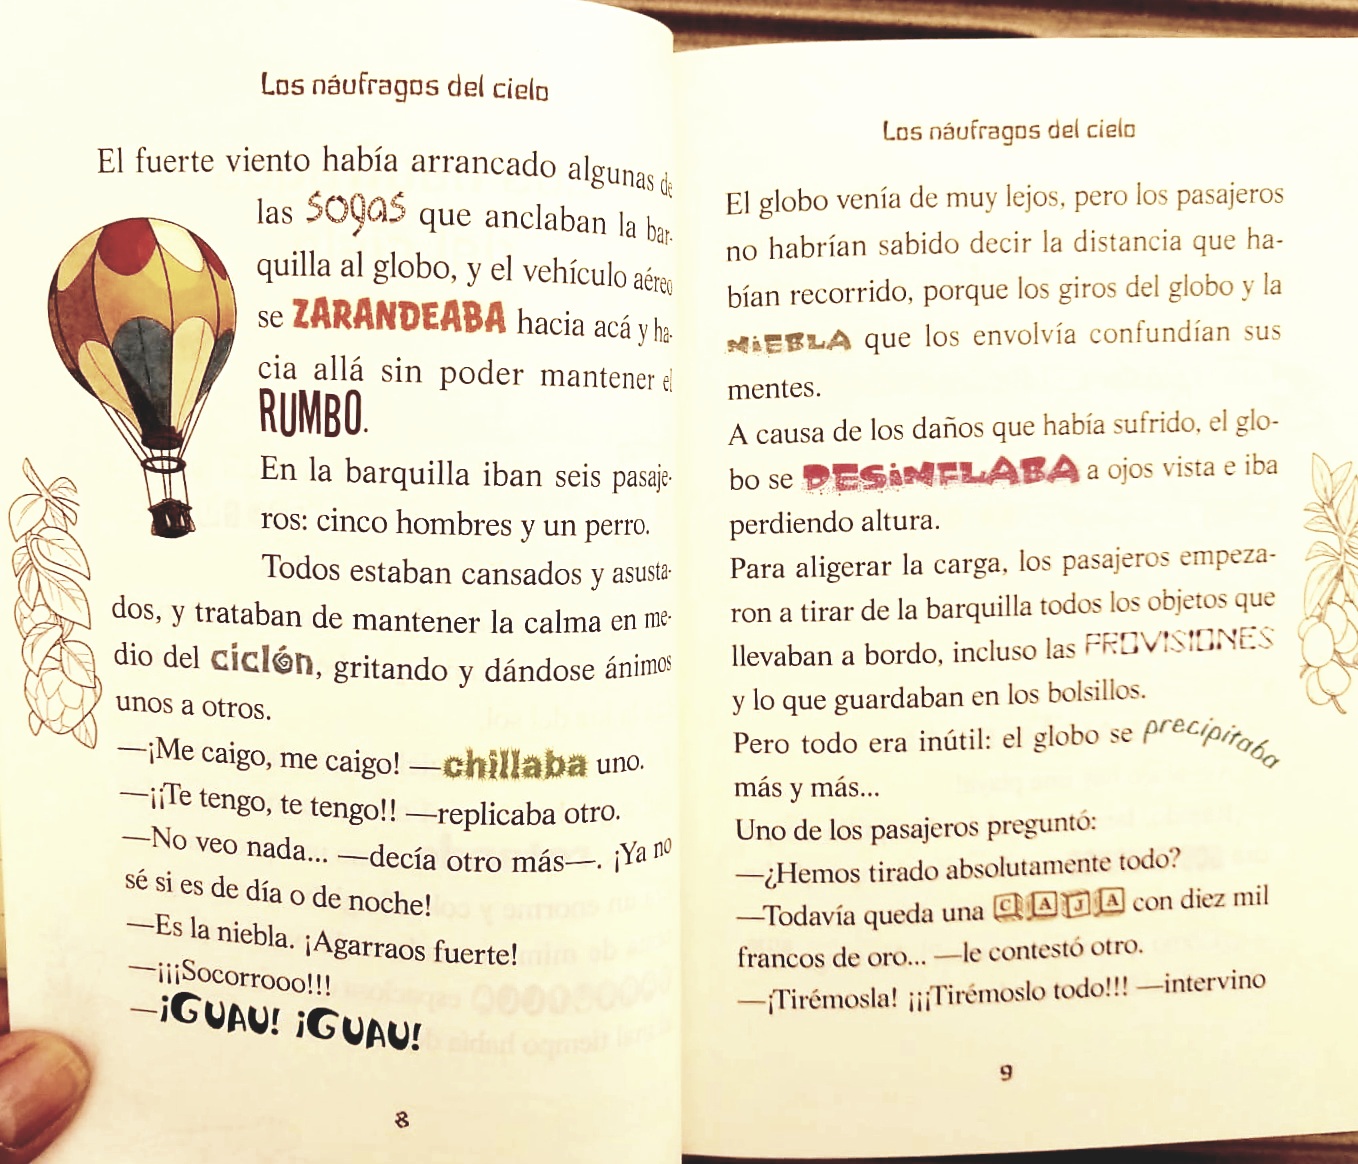 Los náufragos del cielo
El fuerte viento había arrancado algunas de
las sogas que anclaban la bar-
quilla al globo, y el vehículo aéreo
se ZARANDEABA hacia acá y ha-
cia allá sin poder mantener el
RUMBO.
En la barquilla iban seis pasaje-
ros: cinco hombres y un perro.
Todos estaban cansados y asusta-
dos, y trataban de mantener la calma en me-
dio del ciclón, gritando y dándose ánimos
unos a otros.
—¡Me caigo, me caigo! —chillaba uno.
—¡¡Te tengo, te tengo!! —replicaba otro.
—No veo nada... —decía otro más—. ¡Ya no
sé si es de día o de noche!
—Es la niebla. ¡Agarraos fuerte!
—¡¡¡Socorrooo!!!
—¡GUAU! ¡GUAU!
8
Los náufragos del cielo
El globo venía de muy lejos, pero los pasajeros
no habrían sabido decir la distancia que ha-
bían recorrido, porque los giros del globo y la
NiEBLA que los envolvía confundían sus
mentes.
A causa de los daños que había sufrido, el glo-
bo se DESiNFLABA a ojos vista e iba
perdiendo altura.
Para aligerar la carga, los pasajeros empeza-
ron a tirar de la barquilla todos los objetos que
llevaban a bordo, incluso las PROVISIONES
y lo que guardaban en los bolsillos.
Pero todo era inútil: el globo se precipitaba
más y más...
Uno de los pasajeros preguntó:
—¿Hemos tirado absolutamente todo?
—Todavía queda una CAJA con diez mil
francos de oro... —le contestó otro.
—¡Tirémosla! ¡¡¡Tirémoslo todo!!! —intervino
9